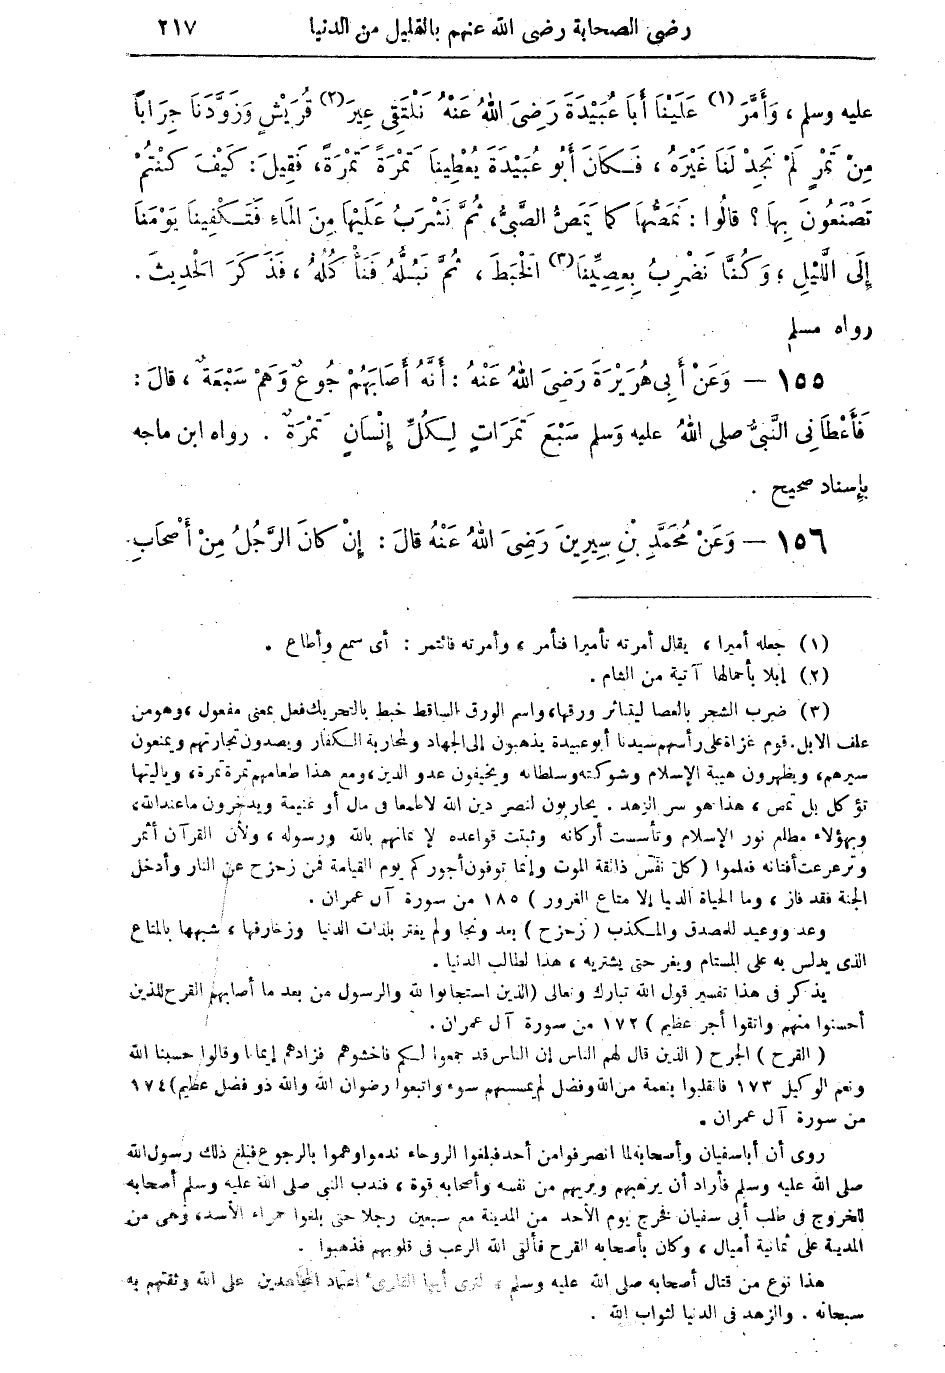 رضى الصحابة رضى الله عنهم بالقليل من الدنيا ٢١٧
عليه وسلم ، وَأَمَّرَ (١) عَلَيْنَا أَبَا عُبَيْدَةَ رَضِىَ اللهُ عَنْهُ نَلْتَقِى عِيرَ (٢) قُرَيْشٍ وَزَوَّدَنَا جِرَابًا
مِنْ تَمْرٍ لَمْ نَجِدْ لَنَا غَيْرَهُ ، فَكَانَ أَبُو عُبَيْدَةَ يُعْطِينَا تَمْرَةً تَمْرَةً ، فَقِيلَ : كَيْفَ كُنْتُمْ
تَصْنَعُونَ بِهَا ؟ قالُوا : نَمَصُّهَا كما يَمَصُّ الصَّبِىُّ، ثُمَّ نَشْرَبُ عَلَيْهَا مِنَ المَاءِ فَتَكْفِينَا يَوْمَنَا
إِلَى اللَّيْلِ ، وَكُنَّا نَضْرِبُ بِعِصِيِّنَا (٣) الخَبَطَ ، ثُمَّ نَبُلُّهُ فَنَأْكُلُهُ ، فَذَكَرَ الحَدِيثَ .
رواه مسلم
١٥٥ — وَعَنْ أَبِى هُرَيْرَةَ رَضِىَ اللهُ عَنْهُ : أَنَّهُ أَصَابَهُمْ جُوعٌ وَهُمْ سَبْعَةٌ ، قالَ :
فَأَعْطَانِى النَّبِىُّ صلى اللهُ عليه وَسلم سَبْعَ تَمَرَاتٍ لِكُلِّ إِنْسَانٍ تَمْرَةٌ . رواه ابن ماجه
بإسناد صحيح .
١٥٦ — وَعَنْ مُحَمَّدِ بْنِ سِيرِينَ رَضِىَ اللهُ عَنْهُ قالَ : إِنْ كانَ الرَّجُلُ مِنْ أَصْحَابِ
(١) جعله أميرا ، يقال أمرته تأميرا فتأمر ، وأمرته فائتمر : أى سمع وأطاع .
(٢) إبلا بأحمالها آتية من الشام .
(٣) ضرب الشجر بالعصا ليتناثر ورقها، واسم الورق الساقط خبط بالتحريك فعل بمعنى مفعول ، وهو من
علف الابل. قوم غزاة على رأسهم سيدنا أبو عبيدة يذهبون إلى الجهاد ولمحاربة الكفار ويصدون تجارتهم ويمنعون
سيرهم، ويظهرون هيبة الإسلام وشوكته وسلطانه ويخيفون عدو الدين، ومع هذا طعامهم تمرة تمرة، وياليتها
تؤكل بل تمص ، هذا هو سر الزهد . يحاربون لنصر دين الله لا طمعا فى مال أو غنيمة ويدخرون ما عند الله،
وبهؤلاء مطلم نور الإسلام وتأسست أركانه وثبتت قواعده لإيمانهم بالله ورسوله ، ولأن القرآن أثمر
وترعرعت أفنانه فعلموا ( كل نفس ذائقة الموت وإنما توفون أجوركم يوم القيامة فمن زحزح عن النار وأدخل
الجنة فقد فاز ، وما الحياة الدنيا إلا متاع الغرور ) ١٨٥ من سورة آل عمران .
وعد ووعيد للمصدق والمكذب ( زحزح ) بعد ونجا ولم يغتر بلذات الدنيا وزخارفها ، شبهها بالمتاع
الذى يدلس به على المستام ويغر حتى يشتريه ، هذا لطالب الدنيا .
يذكر فى هذا تفسير قول الله تبارك وتعالى (الذين استجابوا لله والرسول من بعد ما أصابهم القرح للذين
أحسنوا منهم واتقوا أجر عظيم ) ١٧٢ من سورة آل عمران .
( القرح ) الجرح ( الذين قال لهم الناس إن الناس قد جمعوا لكم فاخشوهم فزادهم إيمانا وقالوا حسبنا الله
ونعم الوكيل ١٧٣ فانقلبوا بنعمة من الله وفضل لم يمسسهم سوء واتبعوا رضوان الله والله ذو فضل عظيم ) ١٧٤
من سورة آل عمران .
روى أن أبا سفيان وأصحابه لما انصرفوا من أحد فبلغوا الروحاء ندموا وهموا بالرجوع فبلغ ذلك رسول الله
صلى الله عليه وسلم فأراد أن يرهبهم ويريهم من نفسه وأصحابه قوة ، فندب النبى صلى الله عليه وسلم أصحابه
للخروج فى طلب أبى سفيان فخرج يوم الأحد من المدينة مع سبعين رجلا حتى بلغوا حمراء الأسد، وهى من
المدينة على ثمانية أميال ، وكان بأصحابه القرح فألقى الله الرعب فى قلوبهم فذهبوا .
هذا نوع من قتال أصحابه صلى الله عليه وسلم ، لترى أيها القارئ اعتماد المجاهدين على الله وثقتهم به
سبحانه . والزهد فى الدنيا لثواب الله .